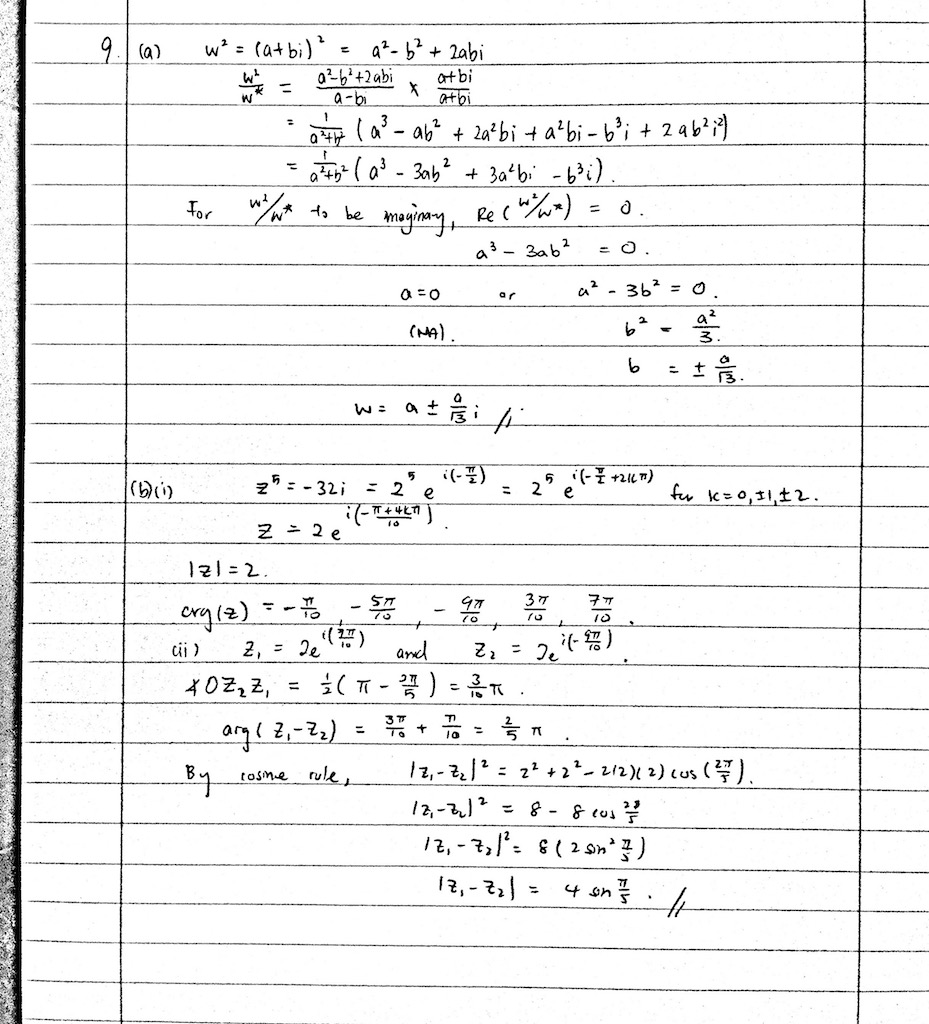 9. (a) w² = (a+bi)² = a²-b² + 2abi
w²/w* = (a²-b²+2abi)/(a-bi) × (a+bi)/(a+bi)
= 1/(a²+b²) (a³ - ab² + 2a²bi + a²bi - b³i + 2ab²i²)
= 1/(a²+b²) (a³ - 3ab² + 3a²bi - b³i).
For w²/w* to be imaginary, Re(w²/w*) = 0.
a³ - 3ab² = 0.
a=0 or a² - 3b² = 0.
(NA). b² = a²/3.
b = ± a/√3.
w = a ± a/√3 i //
(b)(i) z⁵ = -32i = 2⁵ e^(i(-π/2)) = 2⁵ e^(i(-π/2 + 2kπ)) for k=0, ±1, ±2.
z = 2e^(i((-π+4kπ)/10)).
|z| = 2.
arg(z) = -π/10, -5π/10, -9π/10, 3π/10, 7π/10.
(ii) z₁ = 2e^(i(7π/10)) and z₂ = 2e^(i(-9π/10)).
∡OZ₂Z₁ = 1/2(π - 2π/5) = 3/10 π.
arg(z₁-z₂) = 3π/10 + π/10 = 2/5 π.
By cosine rule, |z₁-z₂|² = 2² + 2² - 2(2)(2) cos(2π/5).
|z₁-z₂|² = 8 - 8 cos 2π/5
|z₁-z₂|² = 8(2 sin² π/5)
|z₁-z₂| = 4 sin π/5. //